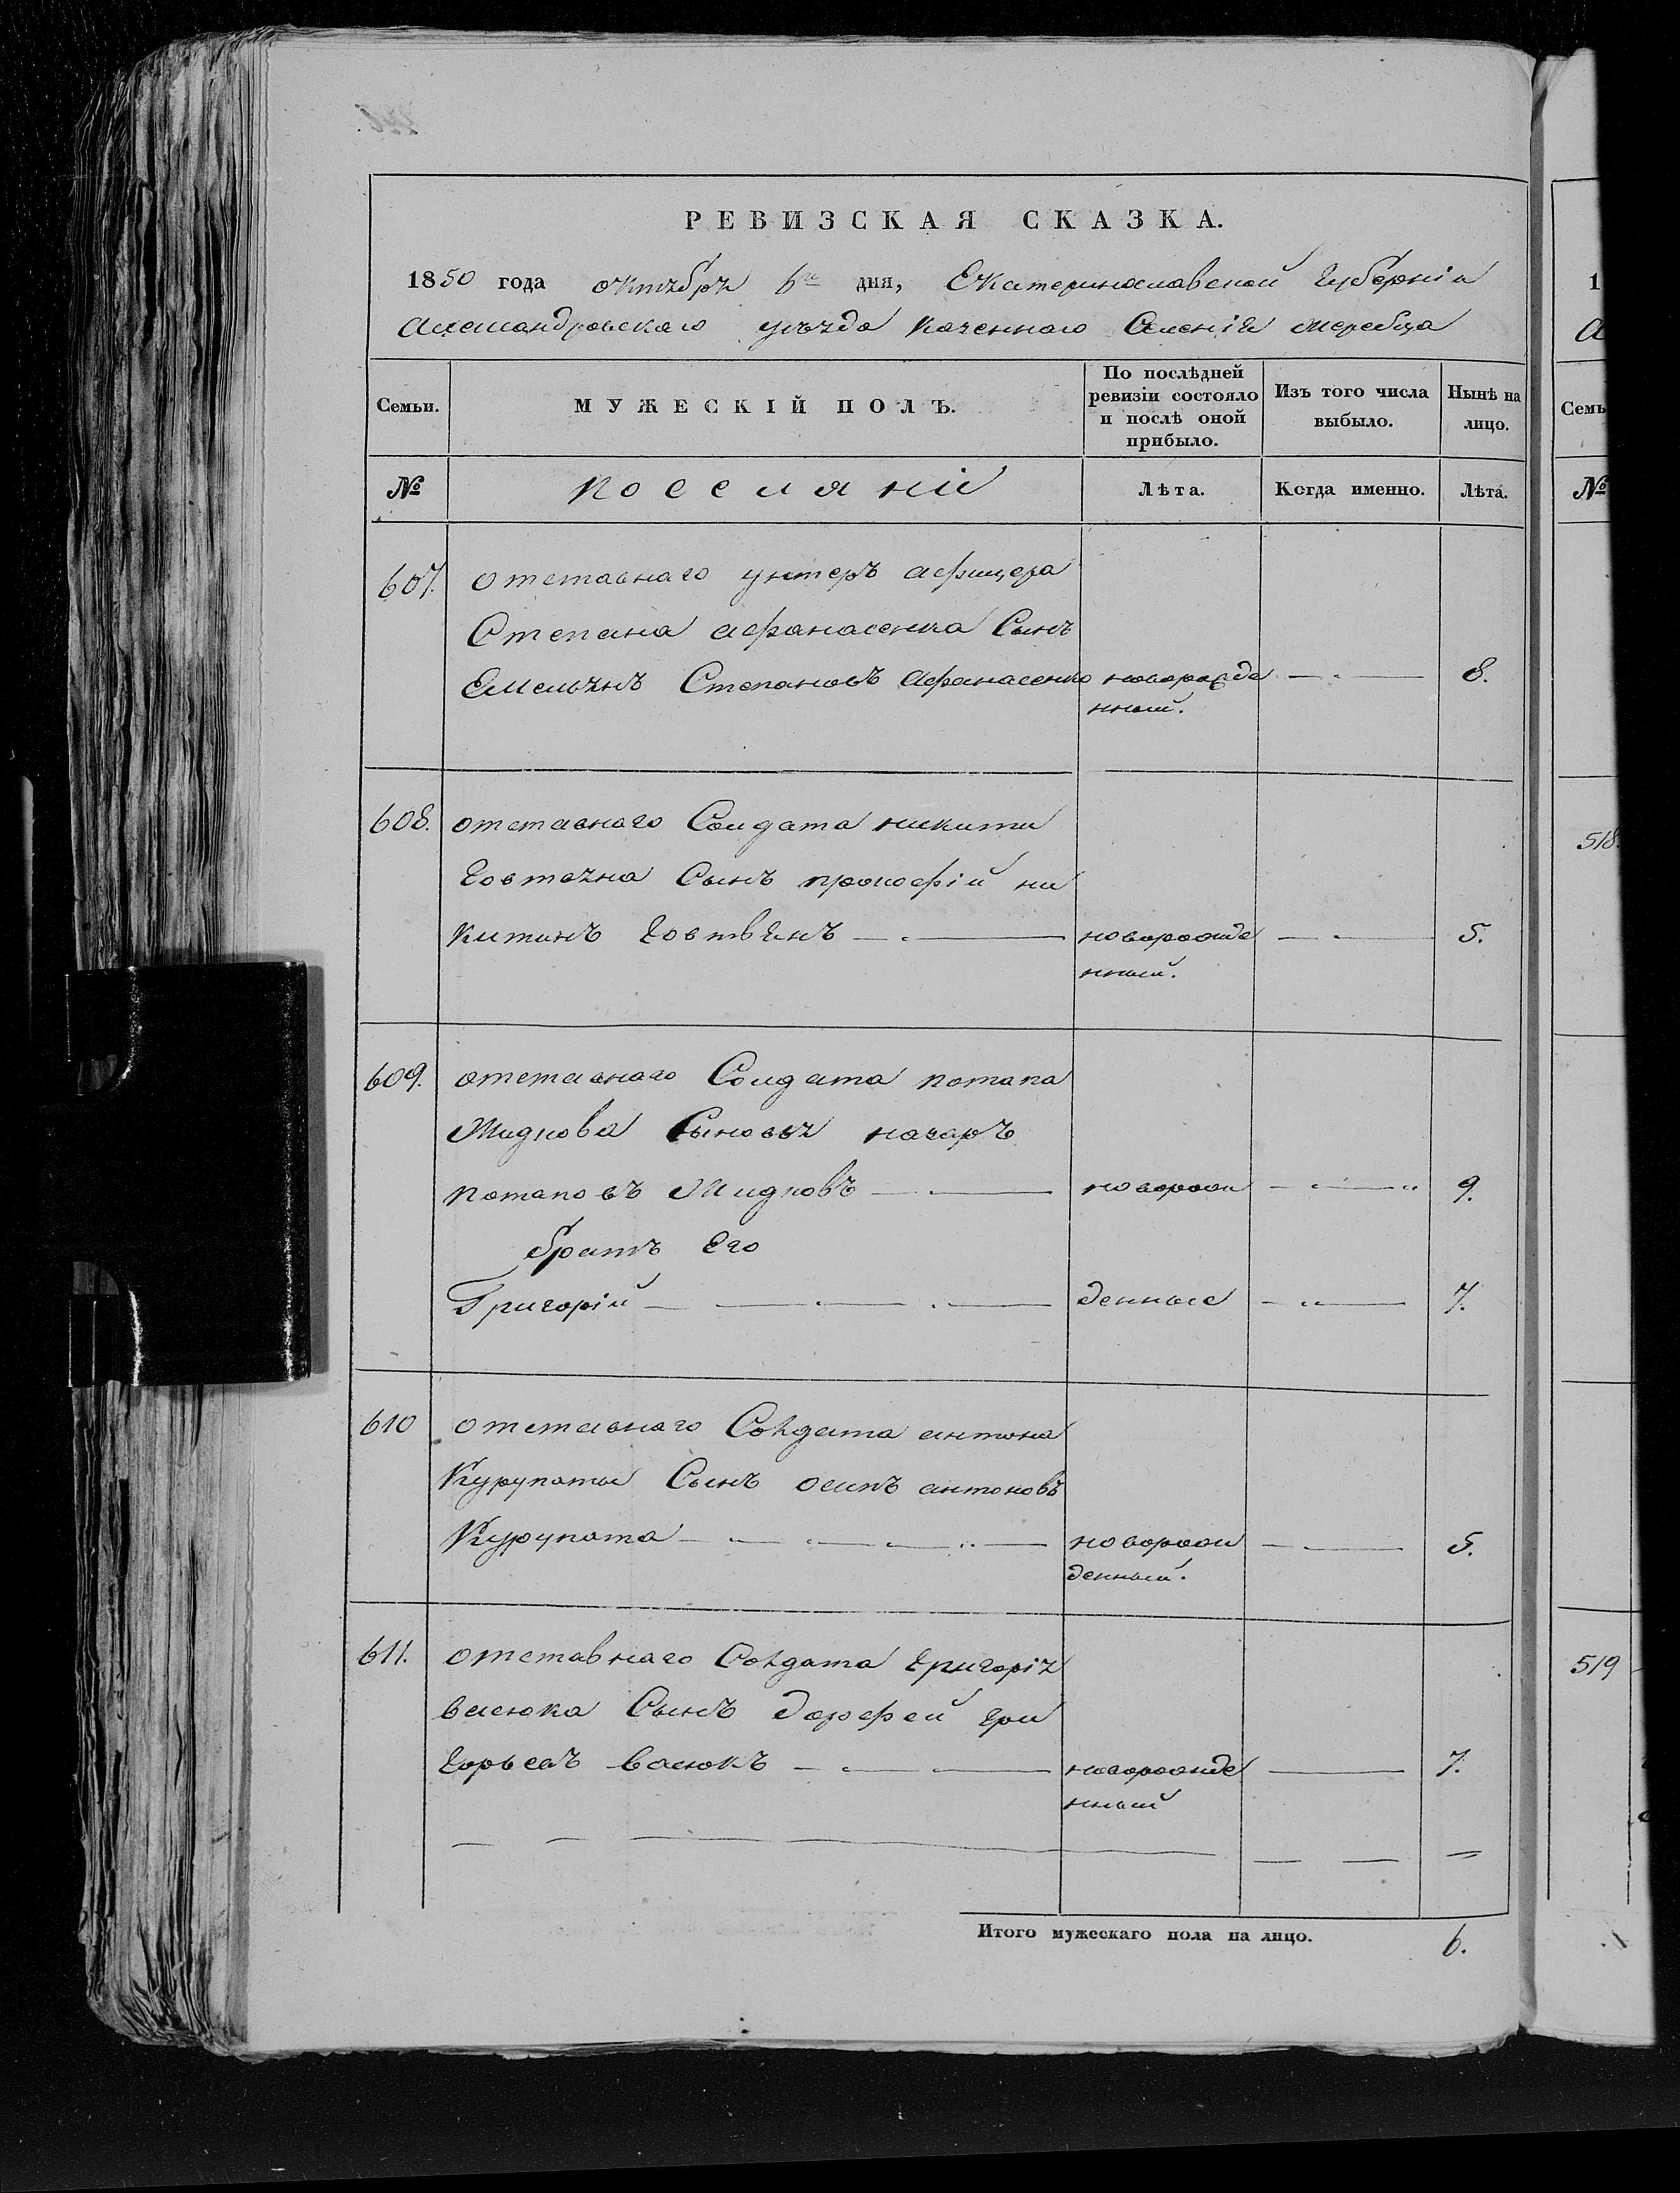 РЕВИЗСКАЯ СКАЗКА.
1850 года октября 6го дня, Екатеринославской губерніи
Александровскаго уезда казеннаго Селенія Жеребца
Семьи. МУЖЕСКІЙ ПОЛЪ. По послѣдней ревизіи состояло и послѣ оной прибыло. Изъ того числа выбыло. Нынѣ на лицо.
№ поселяніе Лѣта. Когда именно. Лѣта.
607. отставнаго унтеръ афицера
Степана афанасенка Сынъ
Емельянъ Степановъ афанасенко новорожде — 8.
нный.
608. отставнаго Солдата никиты
Товтяна Сынъ прокофій ни
китинъ — новорожде — 5.
нный.
609. отставнаго Солдата потапа
Жидкова Сыновья назаръ
потаповъ Жидковъ — новорож — 9.
братъ Его
Григорій — денные — 7.
610 отставнаго Солдата антона
Курупаты Сынъ осипъ антоновъ
Курупата — новорож — 5.
денный.
611. отставнаго Солдата григорія
васюка Сынъ дорофей гри
горьевъ васюкъ — новорожде — 7.
нный
Итого мужескаго пола на лицо. 6.
1
Семь
№
518.
519